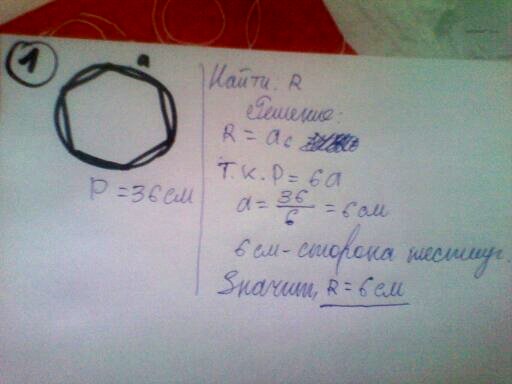 1
a
P = 36 см
Найти. R
Решение:
R = a₆
Т.К. P = 6a
a = 36/6 = 6 см
6 см - сторона шестиуг.
Значит, R = 6 см